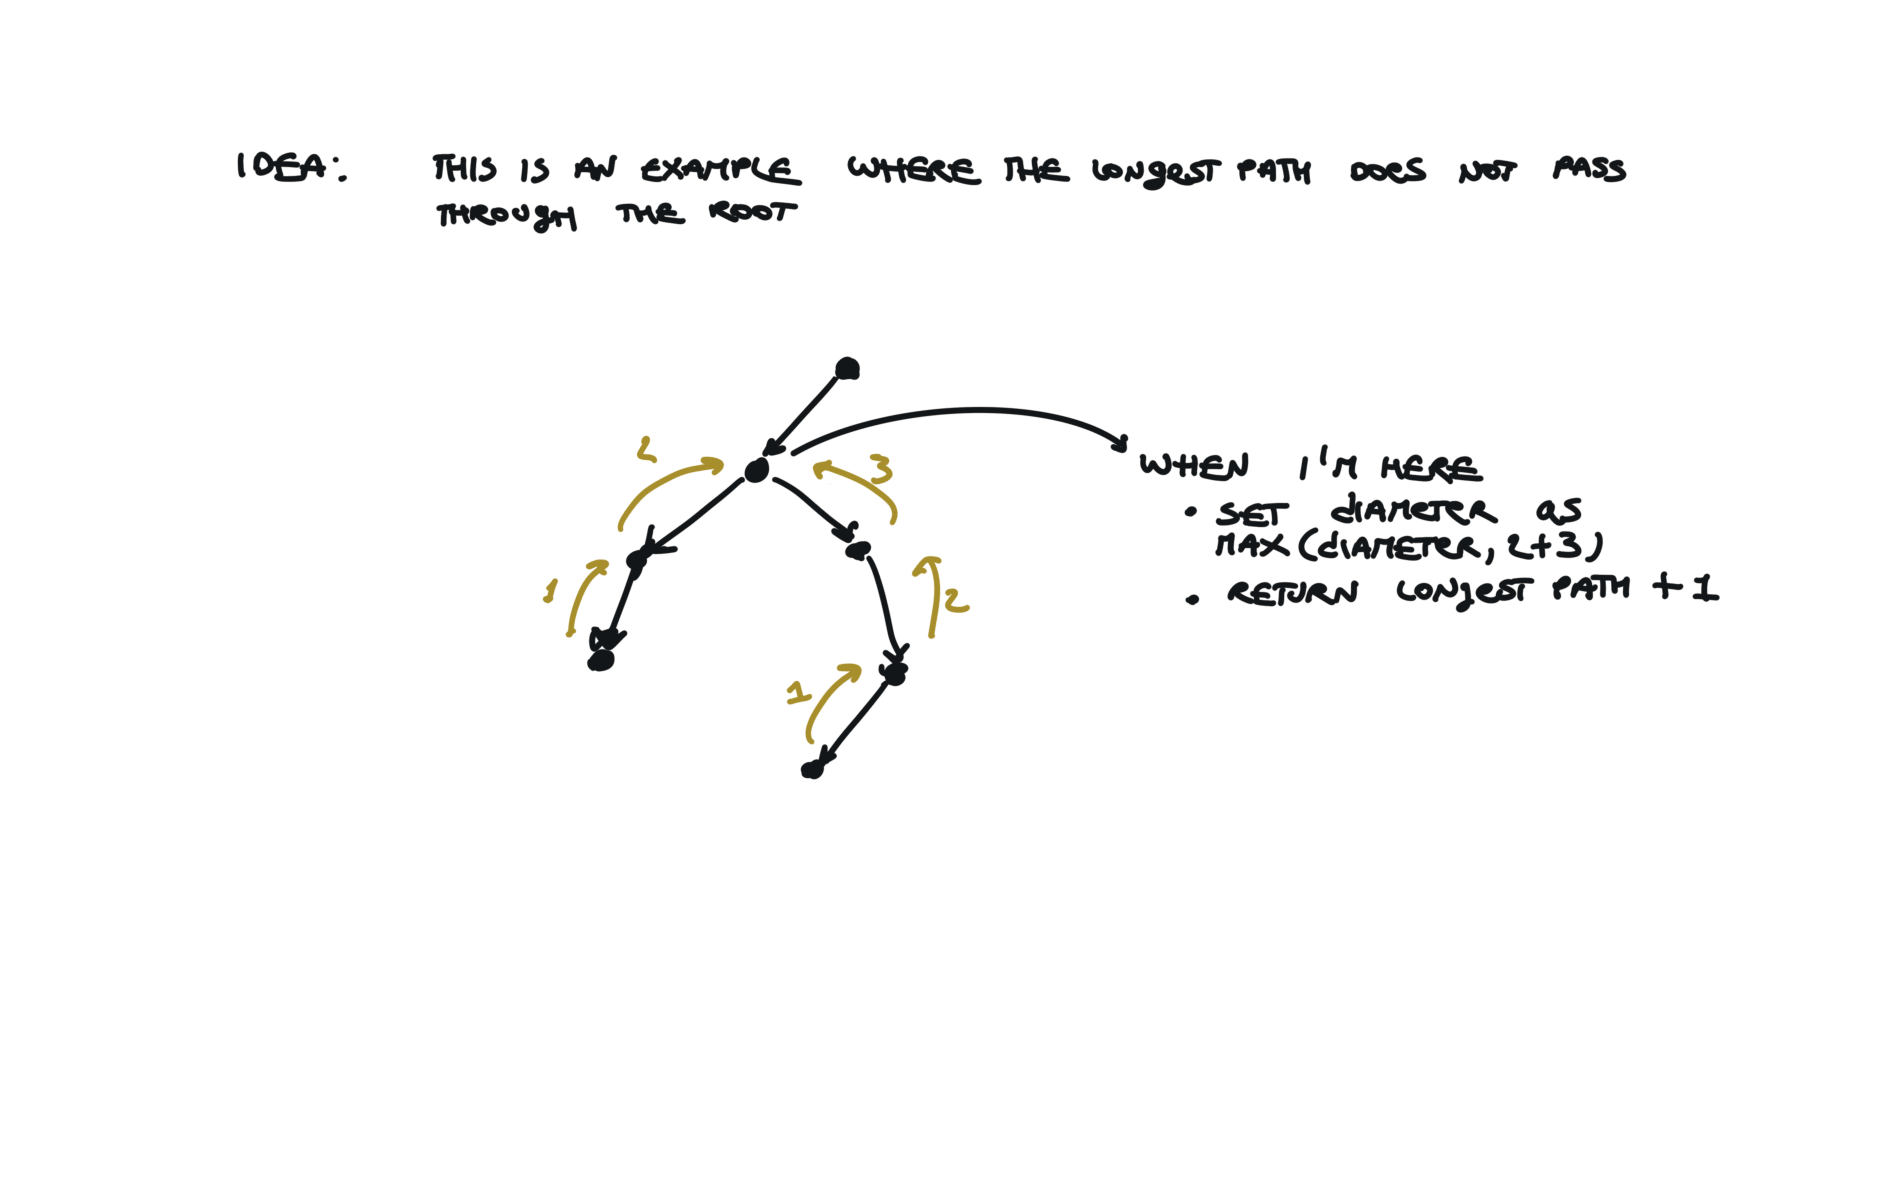 IDEA: THIS IS AN EXAMPLE WHERE THE LONGEST PATH DOES NOT PASS
THROUGH THE ROOT
2
3
WHEN I'M HERE
• SET DIAMETER AS
MAX(DIAMETER, 2+3)
1
2
• RETURN LONGEST PATH +1
1